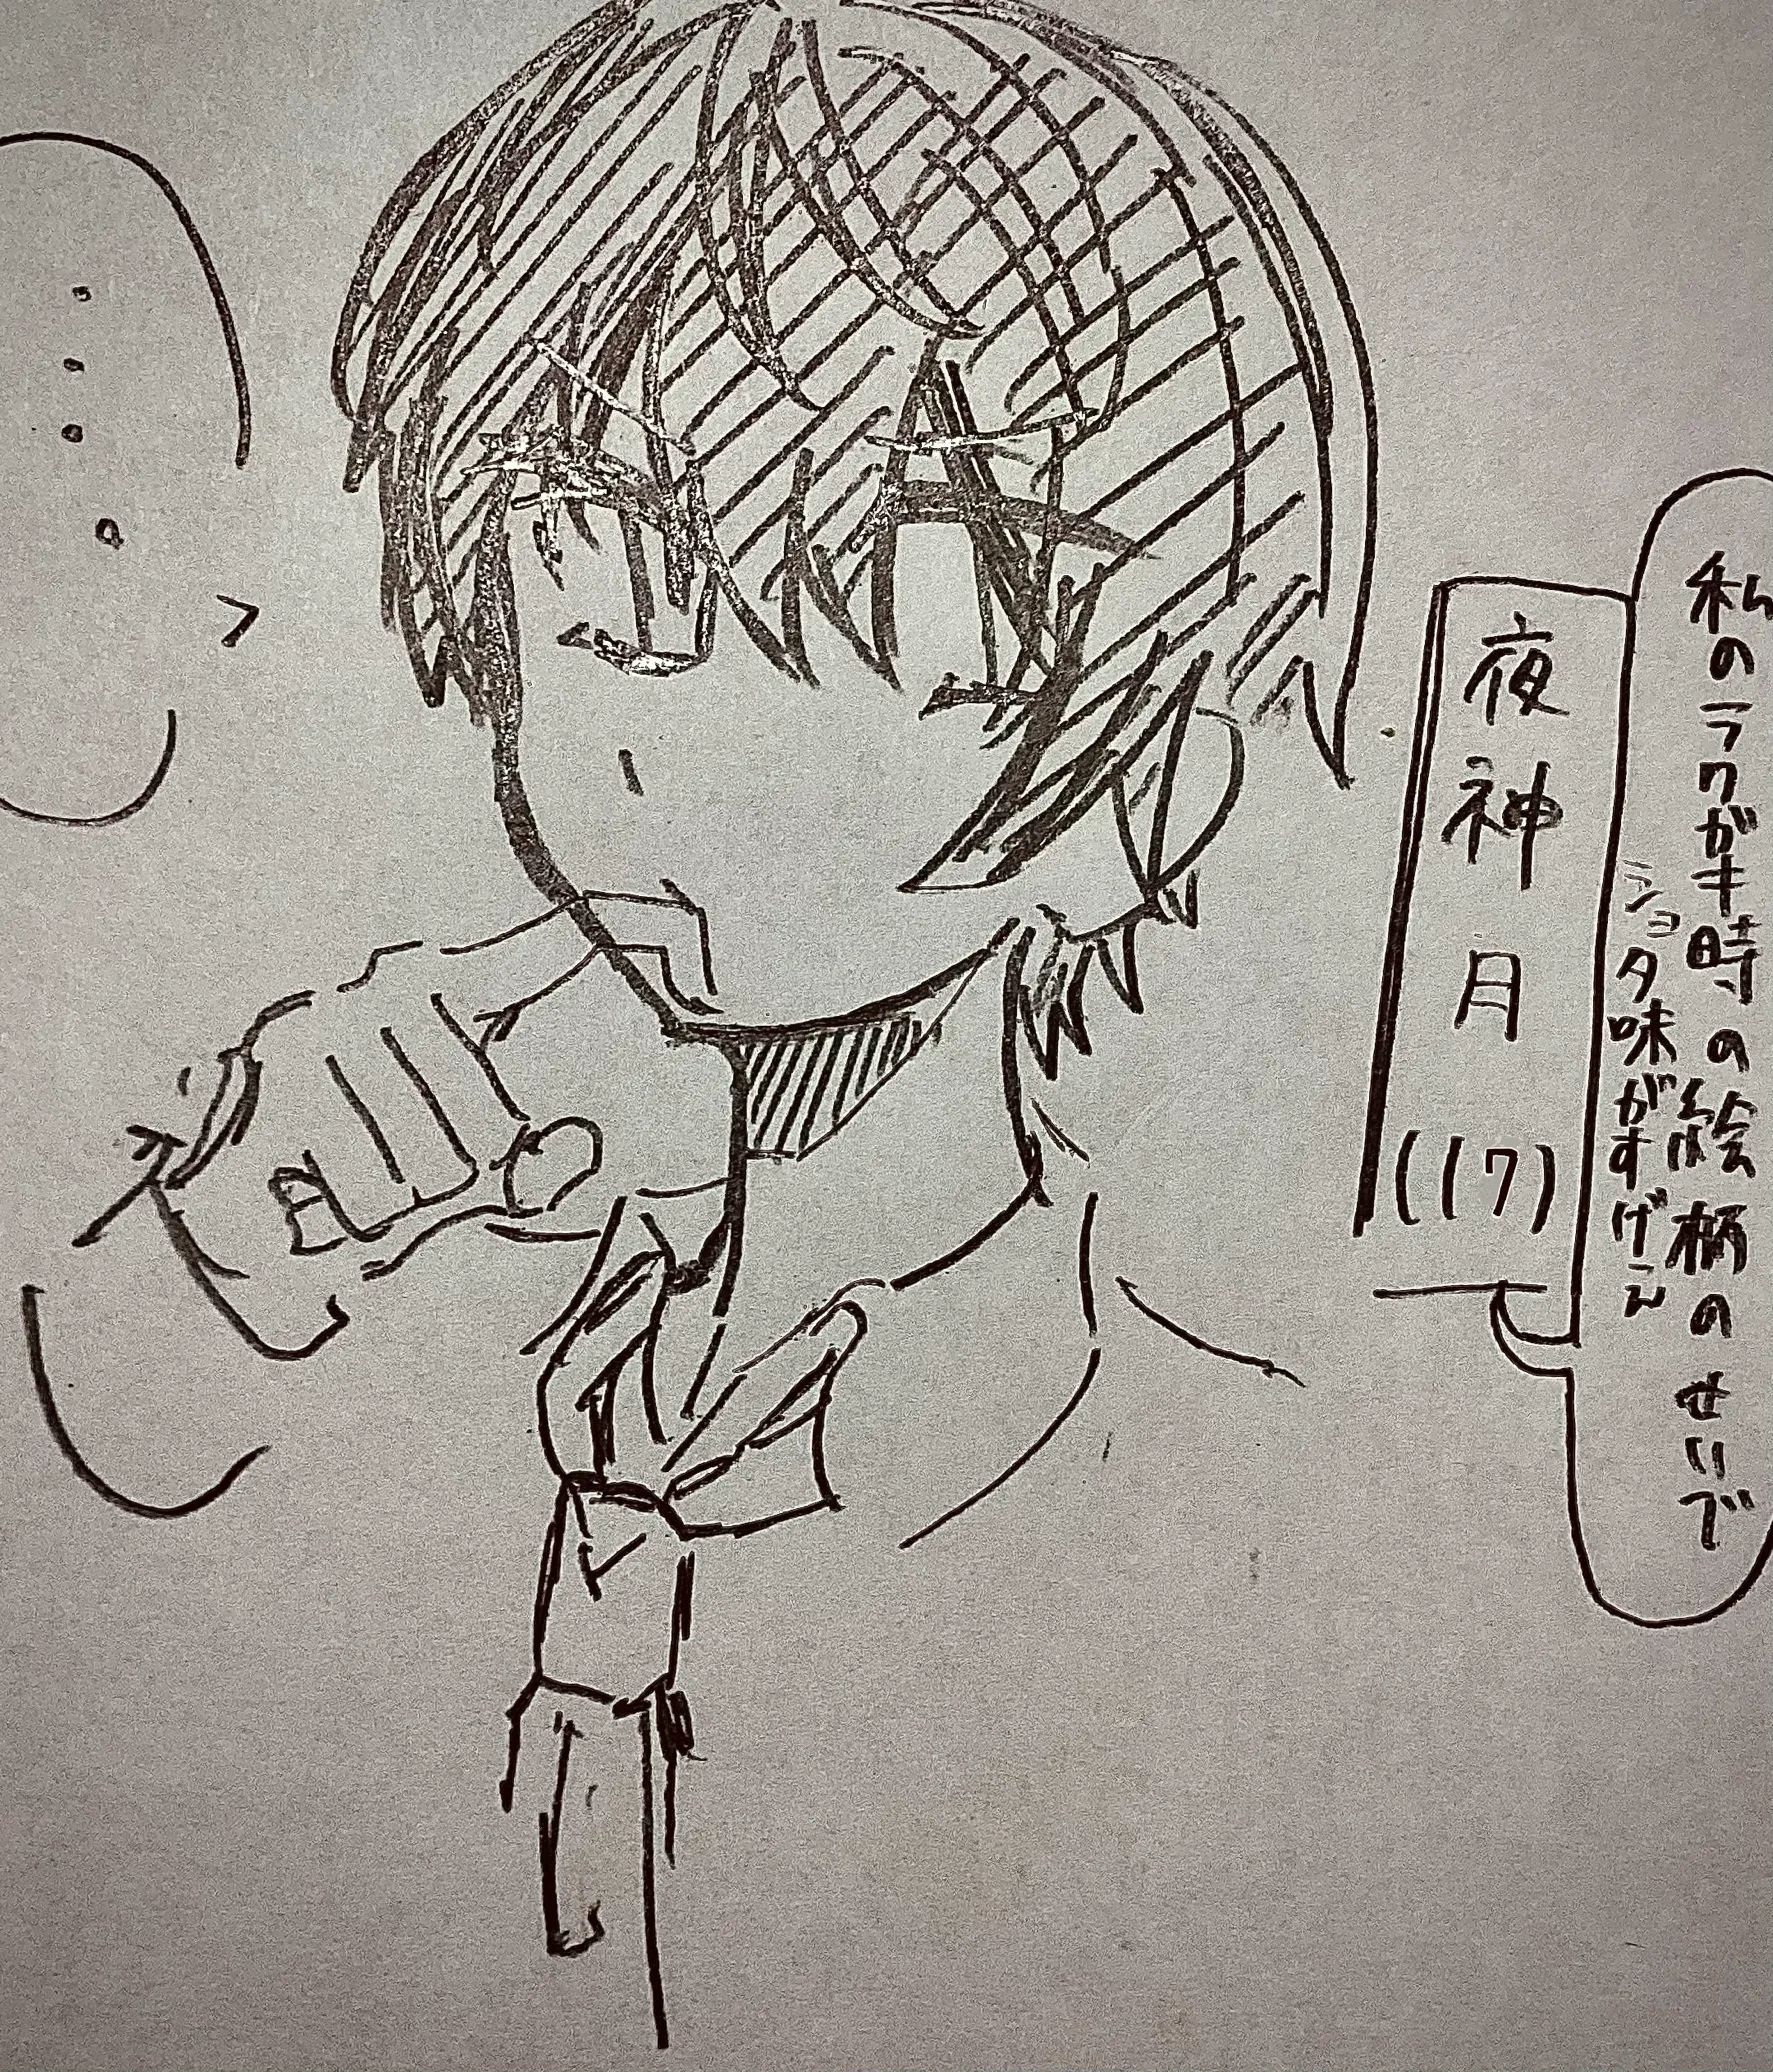 私のラクガキ時の絵柄のせいで
ショタ味がすげーん
夜神月(17)
・・・。